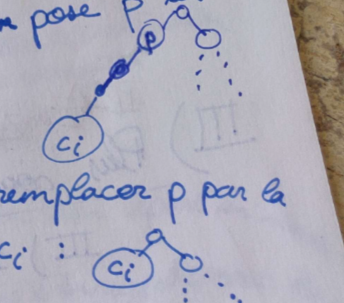 pose p
p
ci
remplacer p par la
ci :
ci